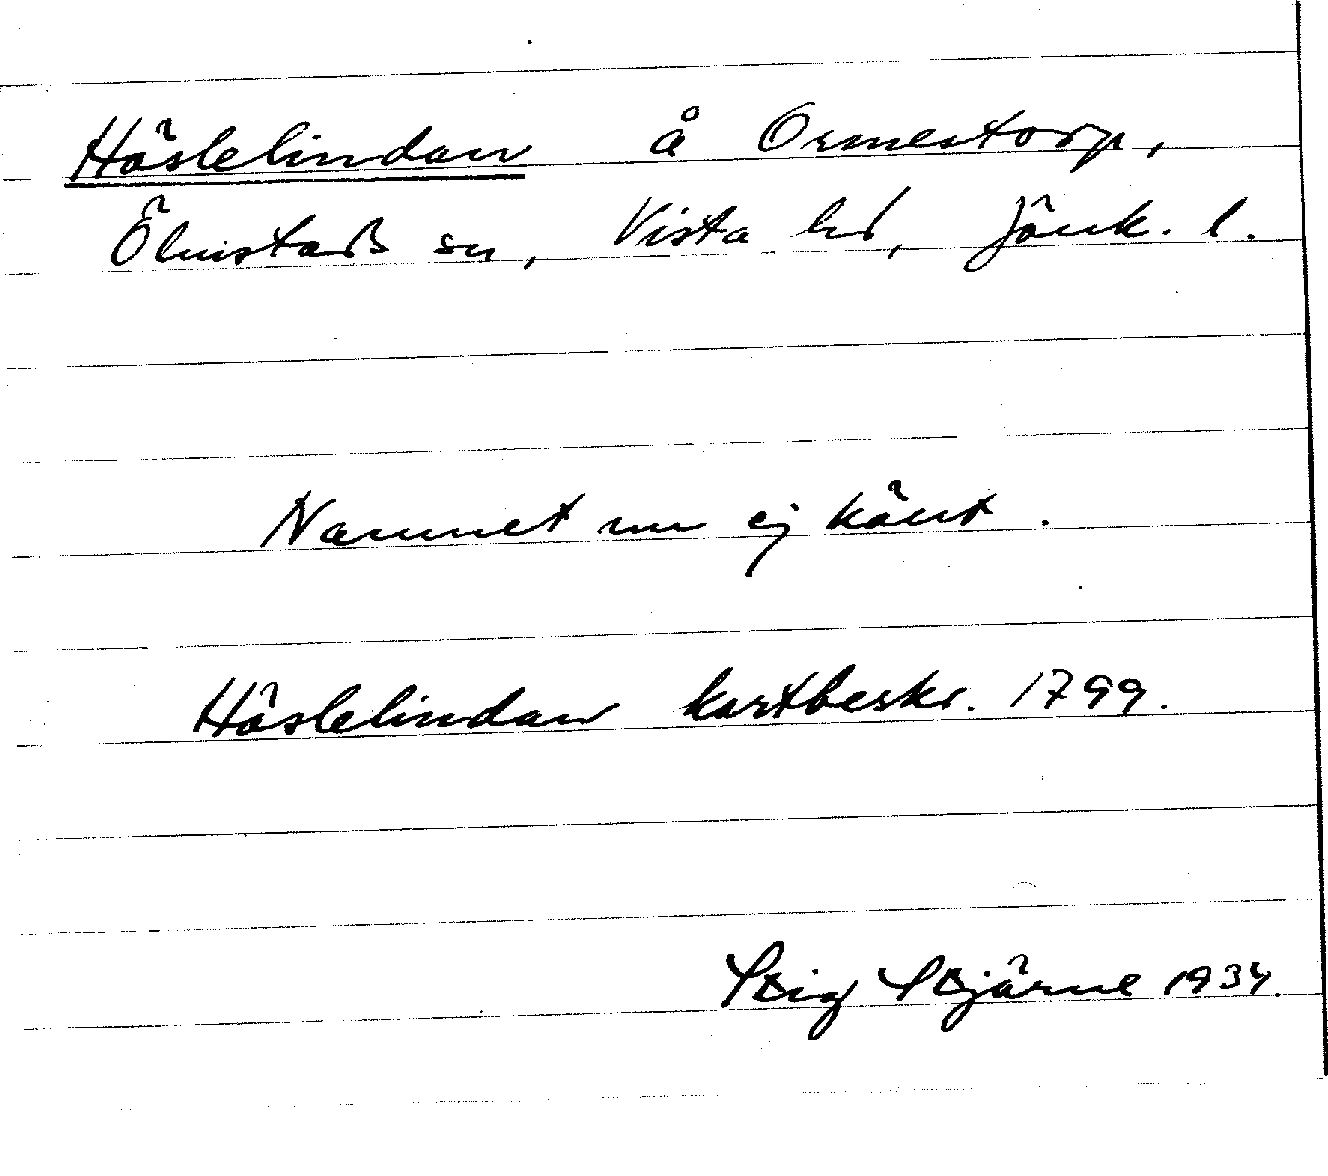 Häslelindan å Ormestorp,
Ölmstads sn, Vista hd, Jönk. l.
Namnet nu ej känt.
Häslelindan kartbeskr. 1799.
Stig Stjärne 1934.